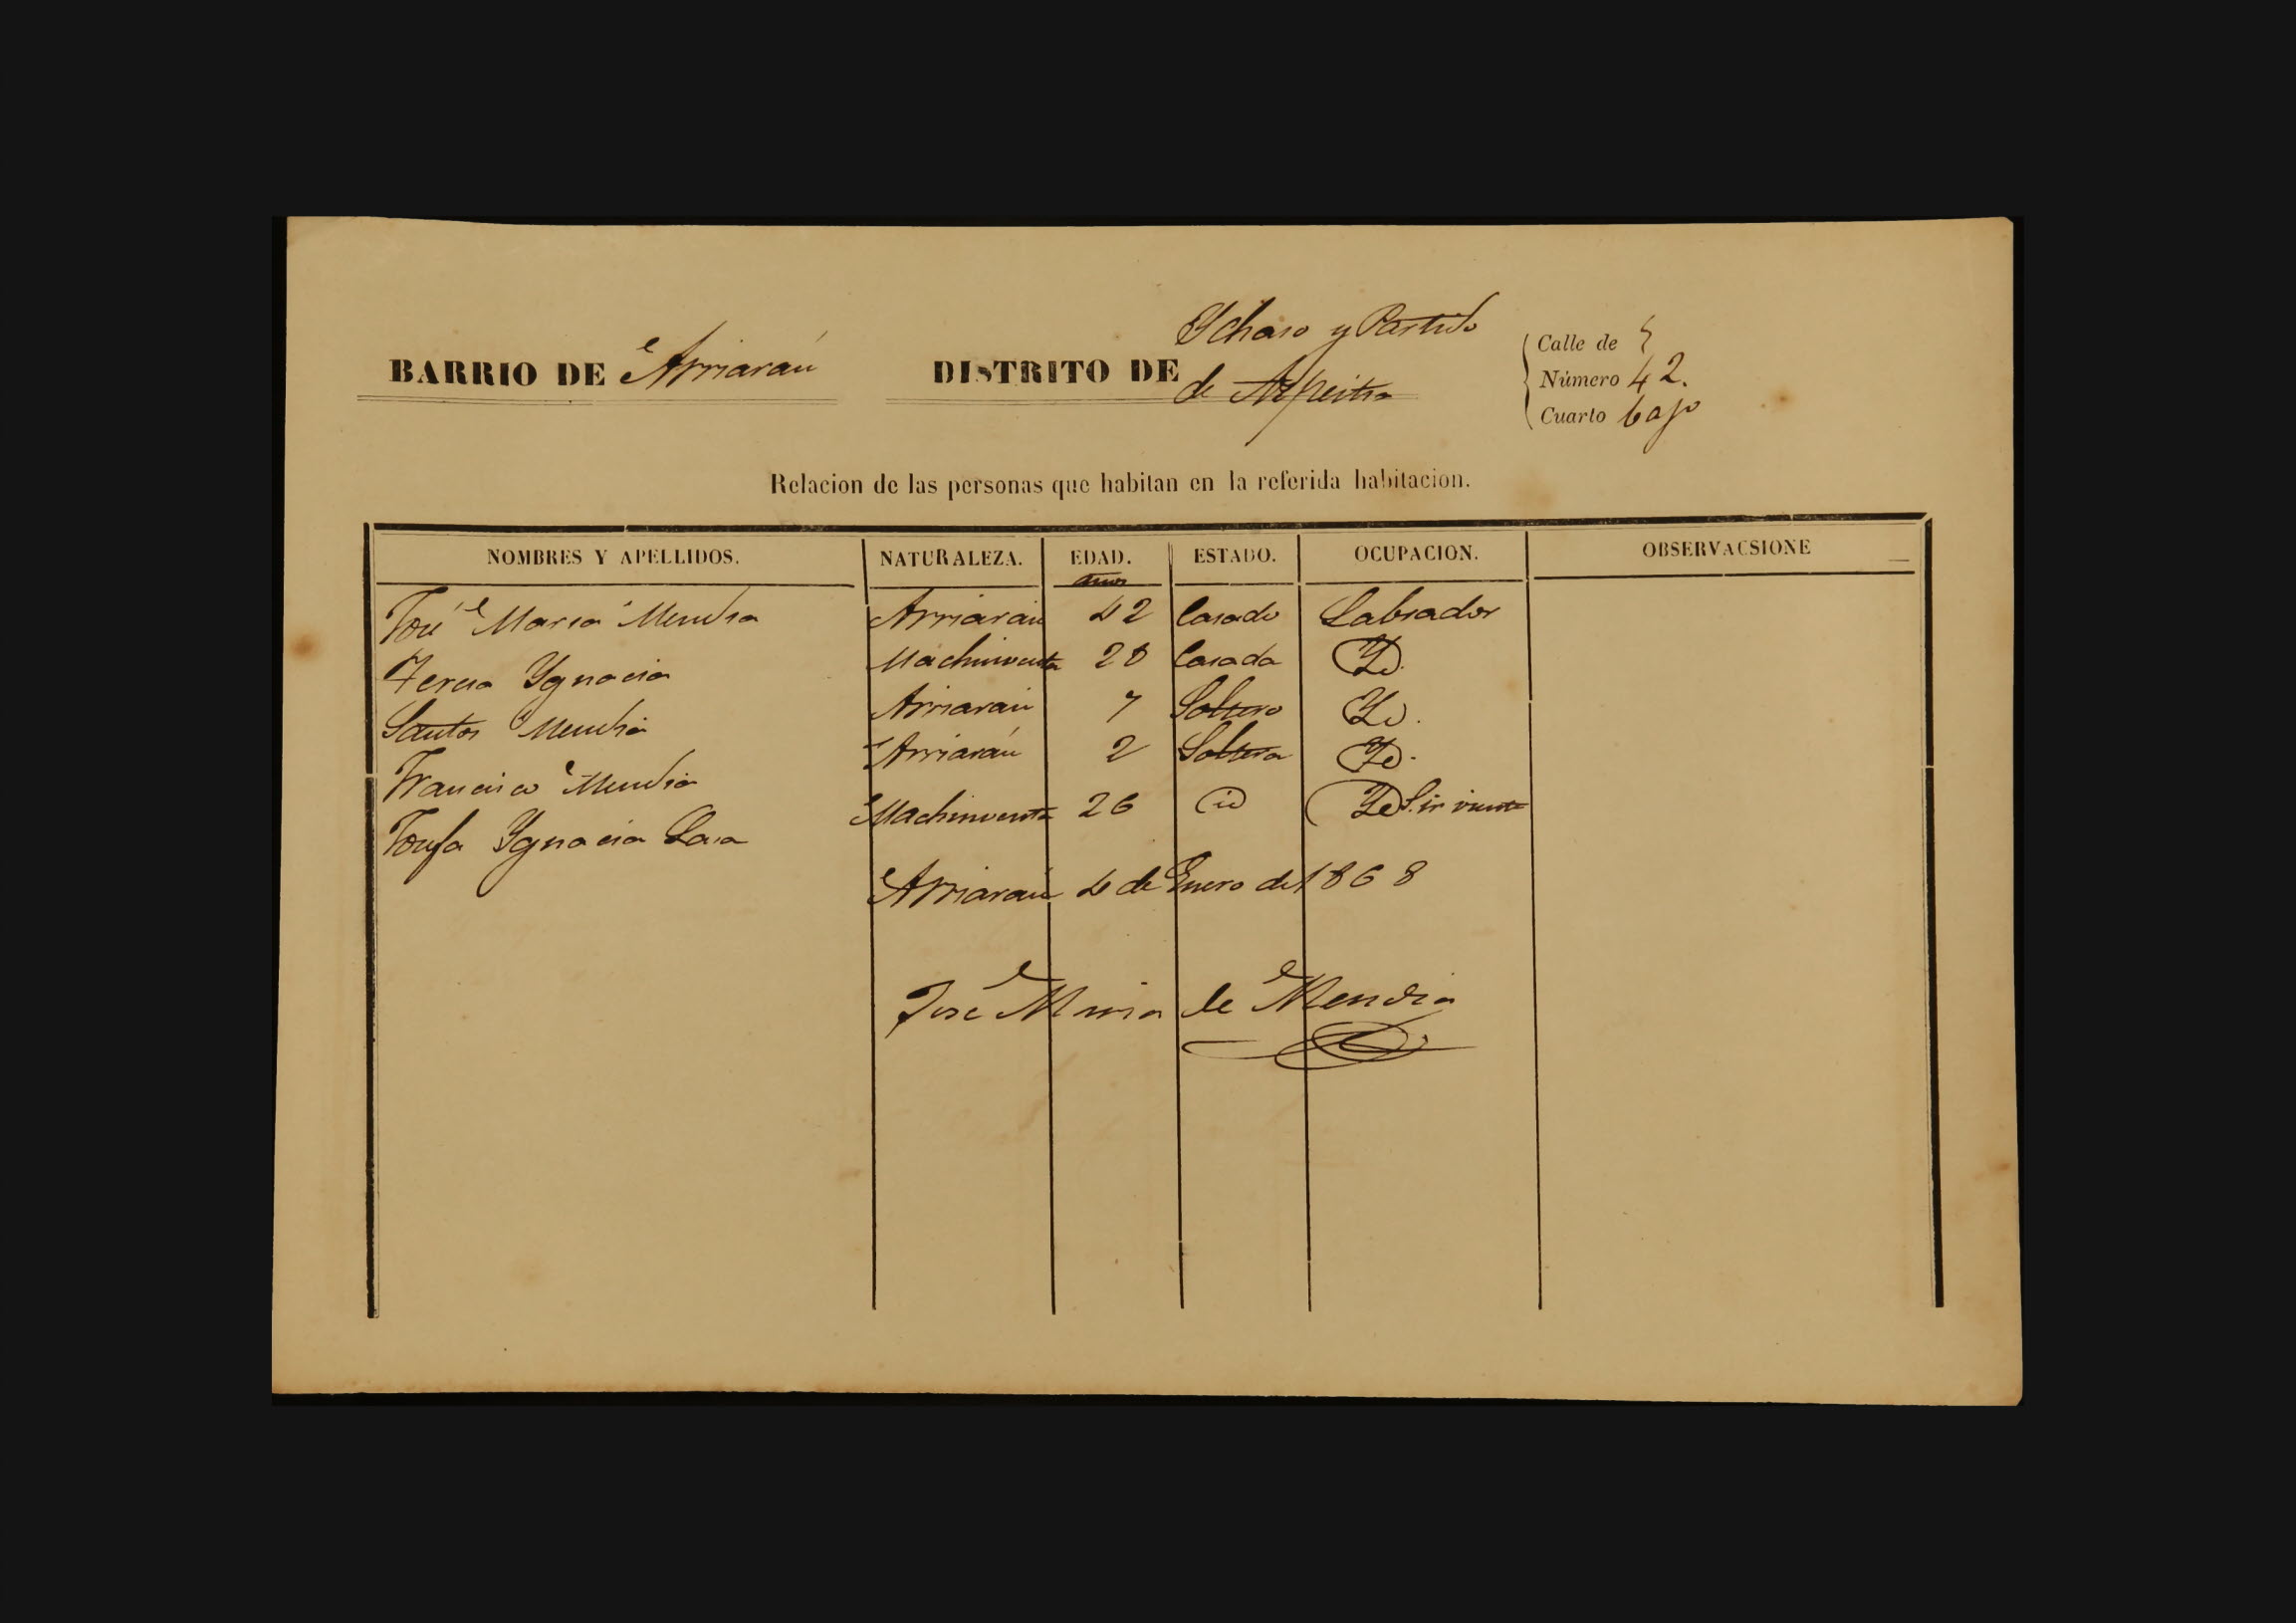 Ychaso y Partido
BARRIO DE Arriarán DISTRITO DE de Azpeitia
Calle de
Número 42.
Cuarto bajo
Relacion de las personas que habitan en la referida habitacion.
NOMBRES Y APELLIDOS. NATURALEZA. EDAD. ESTADO. OCUPACION. OBSERVACSIONE
años
José Maria Mendia Arriarán 42 Casado Labrador
Teresa Ygnacia Machinventa 28 Casada Yd.
Santos Mendia Arriarán 7 Soltero Yd.
Francisco Mendia Arriarán 2 Soltera Yd.
Josefa Ygnacia Lasa Machinventa 26 id Yd Sirviente
Arriarán 4 de Enero de 1868
José Maria de Mendia